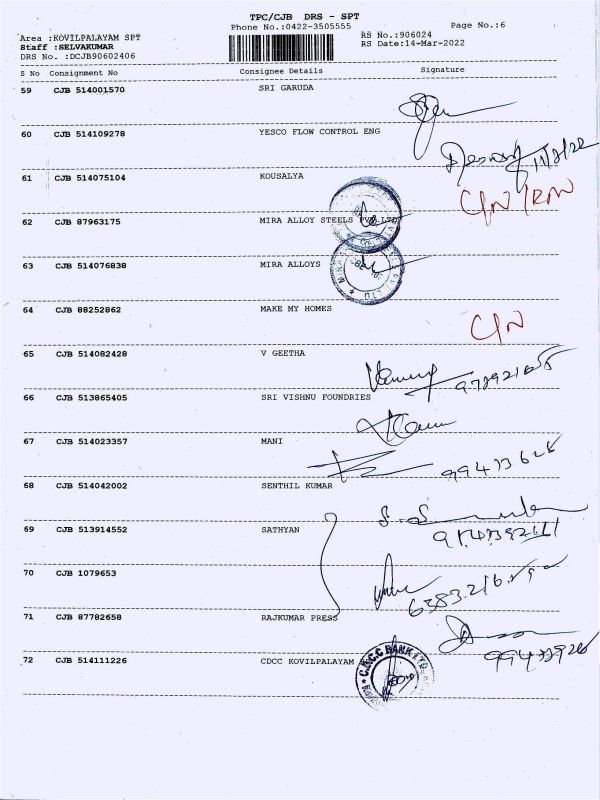 TPC/CJB DRS - SPT
Phone No.:0422-3505555
Page No.:6
Area :KOVILPALAYAM SPT
RS No.:906024
Staff :SELVAKUMAR
RS Date:14-Mar-2022
DRS No. :DCJB90602406
S No Consignment No Consignee Details Signature
59 CJB 514001570 SRI GARUDA
60 CJB 514109278 YESCO FLOW CONTROL ENG
61 CJB 514075104 KOUSALYA
62 CJB 87963175 MIRA ALLOY STEELS PVT.LTD
63 CJB 514076838 MIRA ALLOYS
64 CJB 88252862 MAKE MY HOMES
C/N
65 CJB 514082428 V GEETHA
66 CJB 513865405 SRI VISHNU FOUNDRIES
67 CJB 514023357 MANI
68 CJB 514042002 SENTHIL KUMAR
69 CJB 513914552 SATHYAN
70 CJB 1079653
71 CJB 87782658 RAJKUMAR PRESS
72 CJB 514111226 CDCC KOVILPALAYAM